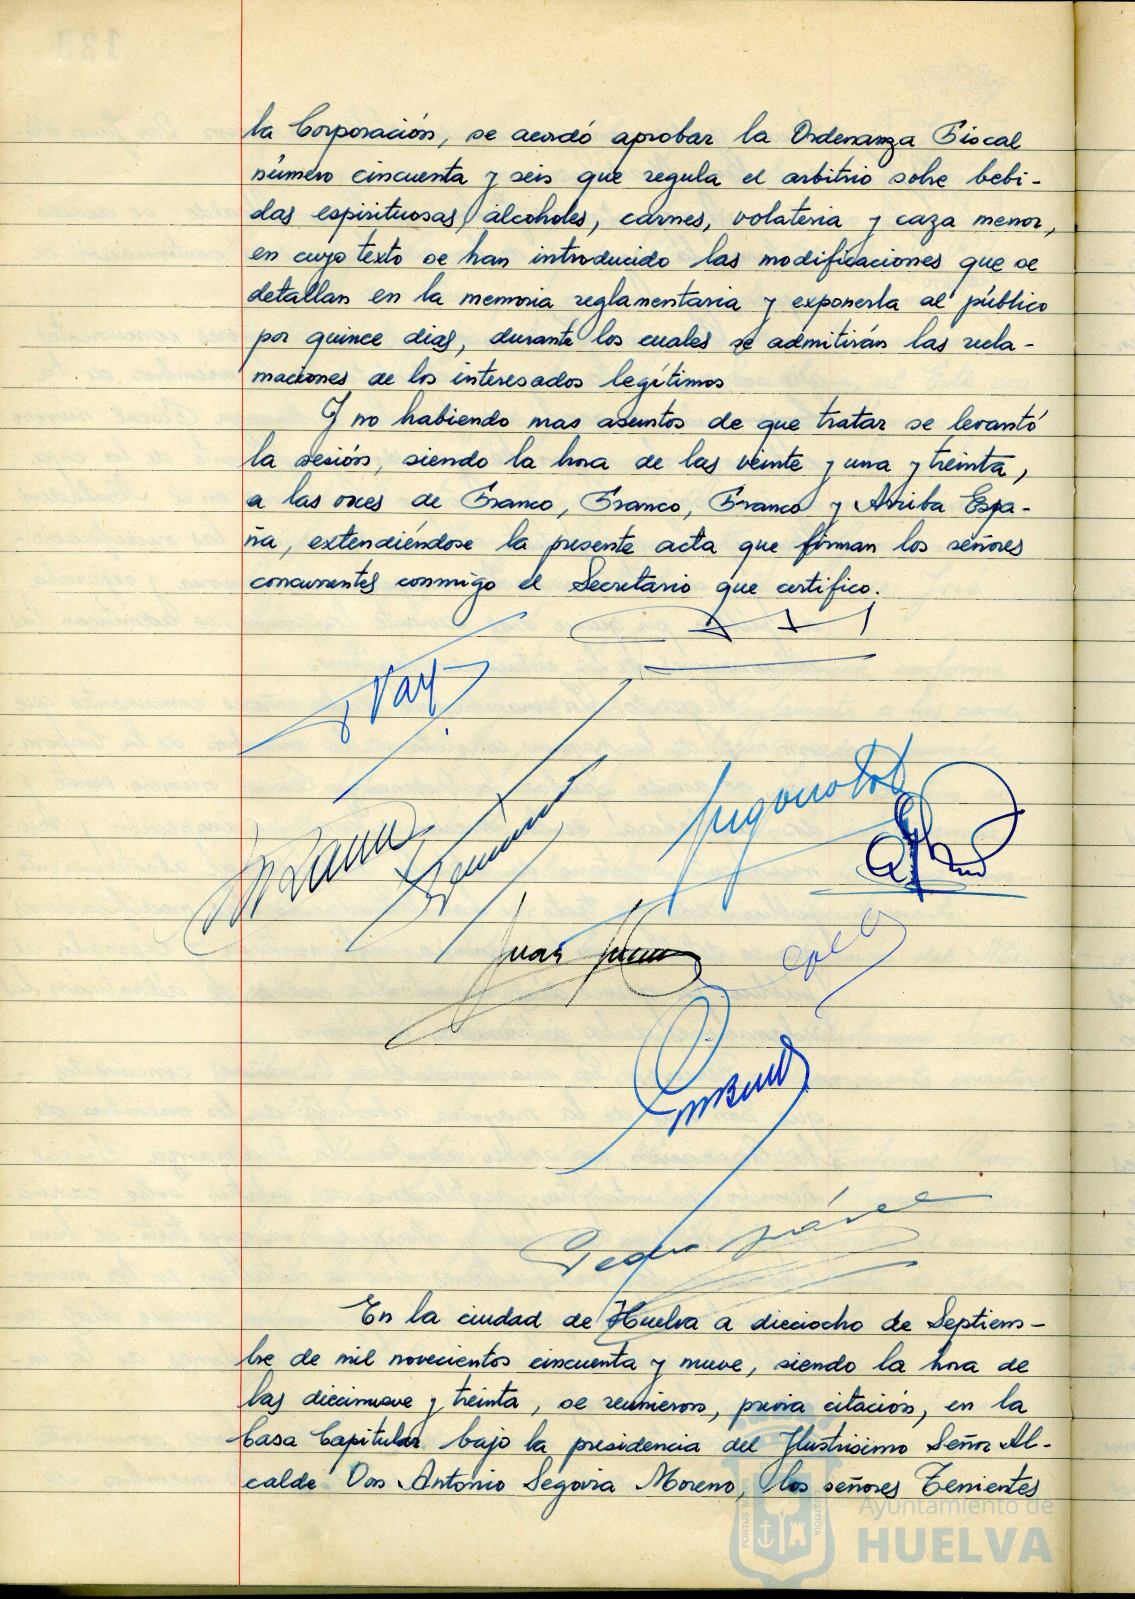 la Corporación, se acordó aprobar la Ordenanza Fiscal
número cincuenta y seis que regula el arbitrio sobre bebi-
das espirituosas, alcoholes, carnes, volateria y caza menor,
en cuyo texto se han introducido las modificaciones que se
detallan en la memoria reglamentaria y exponerla al público
por quince dias, durante los cuales se admitirán las recla-
maciones de los interesados legítimos
Y no habiendo mas asuntos de que tratar se levantó
la sesión, siendo la hora de las veinte y una y treinta,
a las voces de Franco, Franco, Franco y Arriba Espa-
ña, extendiéndose la presente acta que firman los señores
concurrentes conmigo el Secretario que certifico.
Juan
Pedro
En la ciudad de Huelva a dieciocho de Septiem-
bre de mil novecientos cincuenta y nueve, siendo la hora de
las diecinueve y treinta, se reunieron, previa citación, en la
Casa Capitular bajo la presidencia del Ilustrisimo Señor Al-
calde Don Antonio Segovia Moreno, los señores Tenientes
PORTUS MARIS
CUSTODIA
Ayuntamiento de
HUELVA